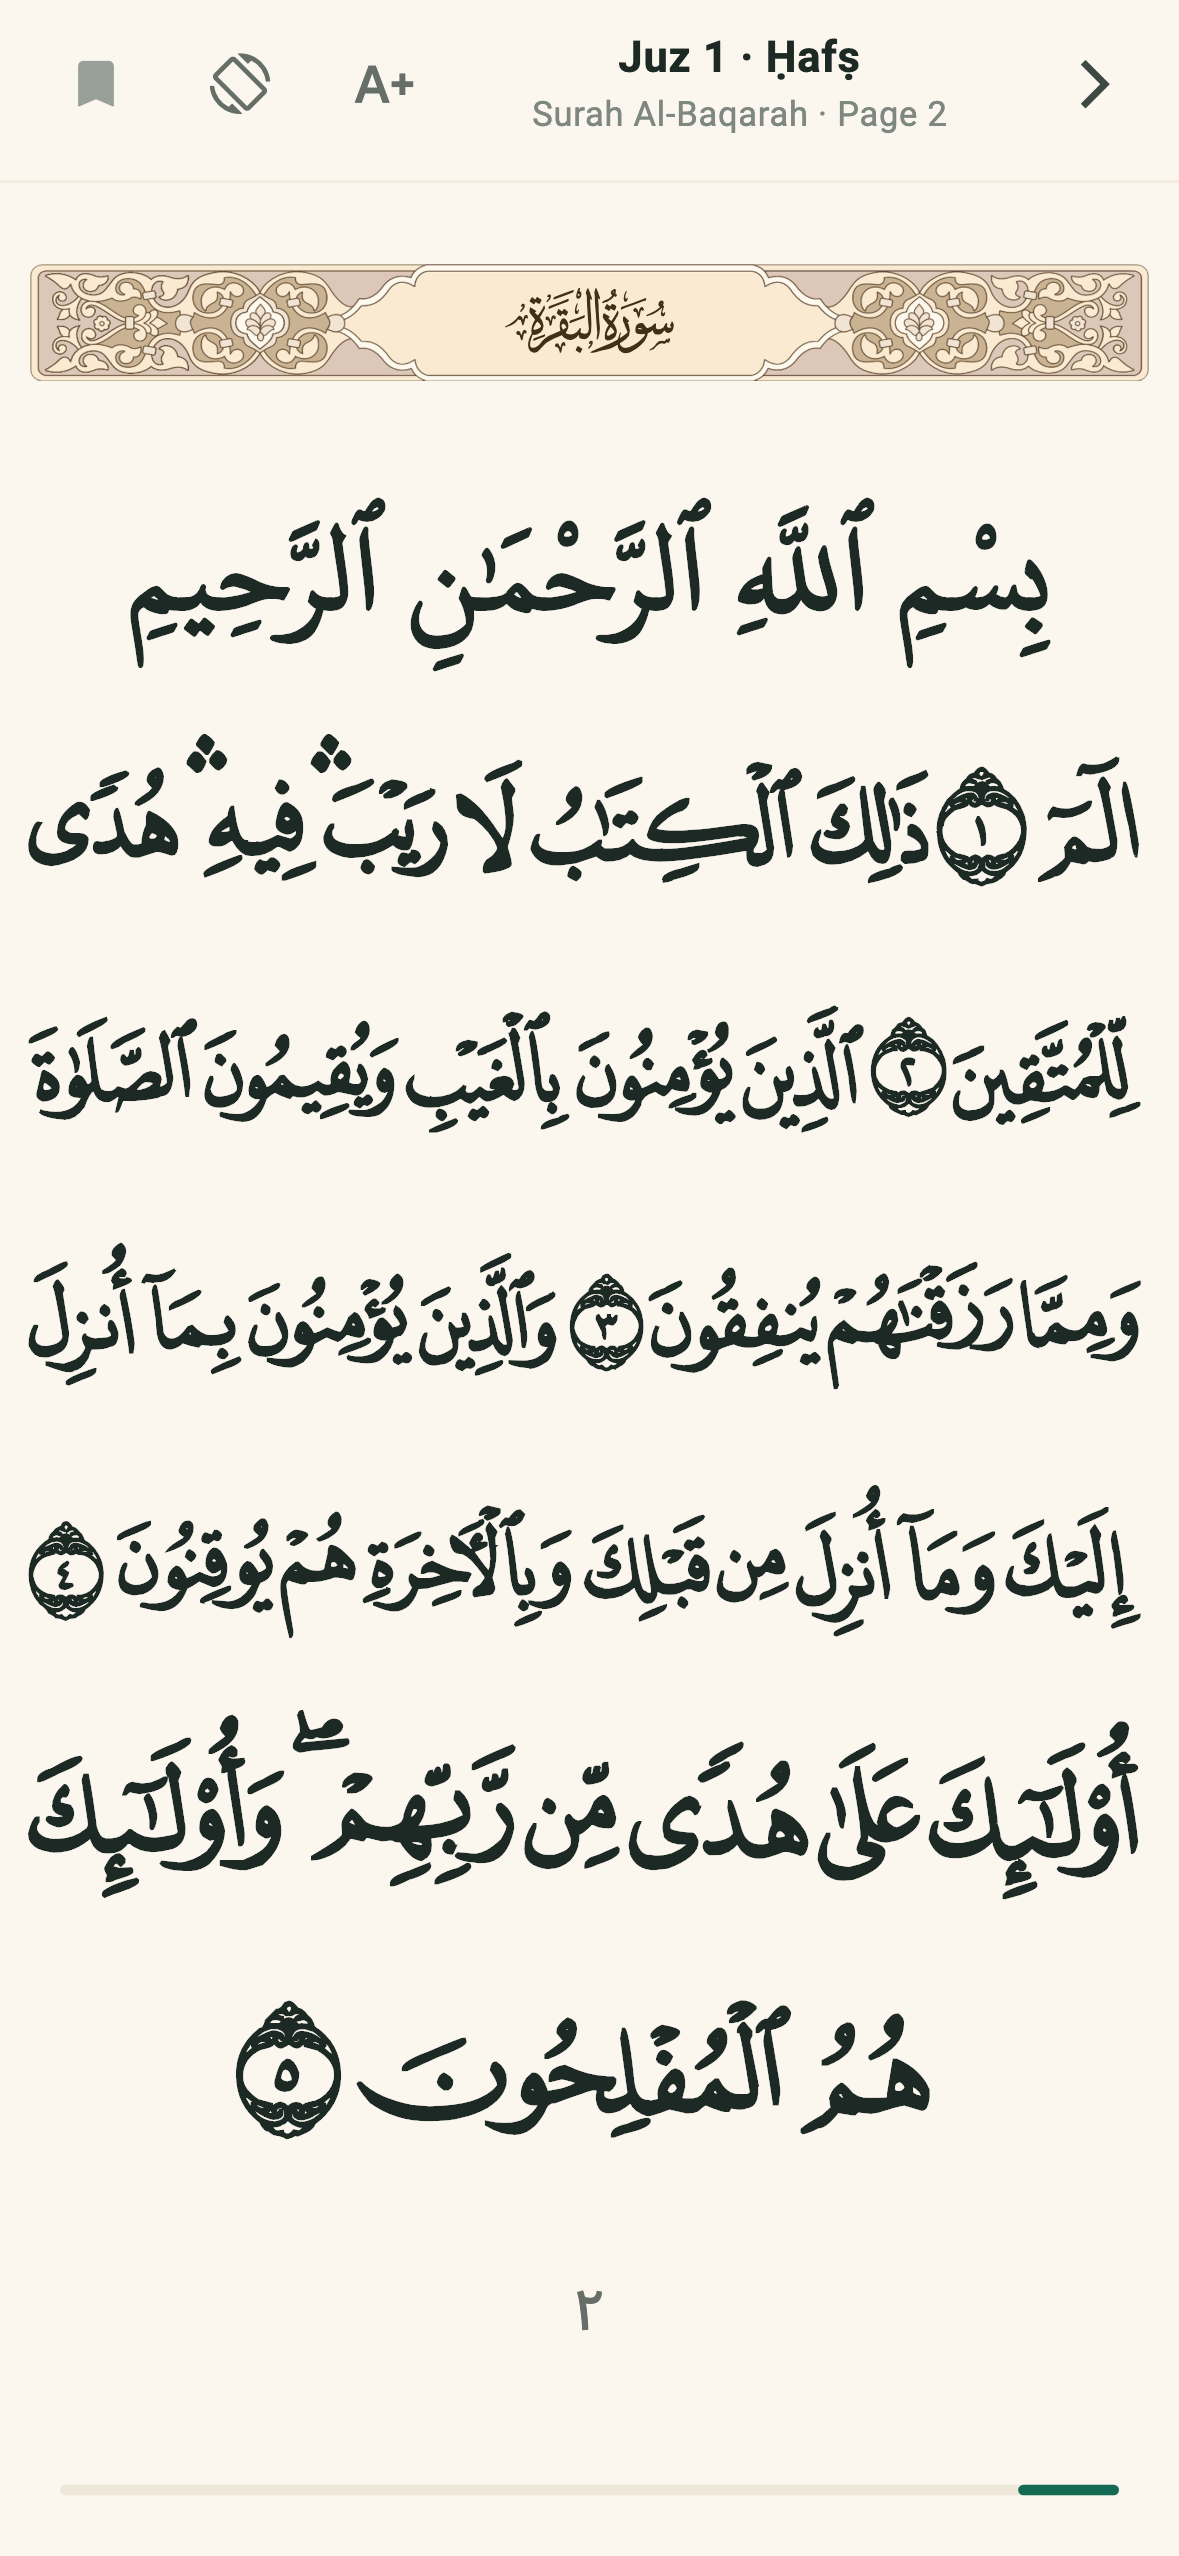 A+
Juz 1 · Ḥafṣ
Surah Al-Baqarah · Page 2
سُورَةُ البَقَرَةِ
بِسْمِ ٱللَّهِ ٱلرَّحْمَٰنِ ٱلرَّحِيمِ
الٓمٓ ١ ذَٰلِكَ ٱلۡكِتَٰبُ لَا رَيۡبَۛ فِيهِۛ هُدٗى
لِّلۡمُتَّقِينَ ٢ ٱلَّذِينَ يُؤۡمِنُونَ بِٱلۡغَيۡبِ وَيُقِيمُونَ ٱلصَّلَوٰةَ
وَمِمَّا رَزَقۡنَٰهُمۡ يُنفِقُونَ ٣ وَٱلَّذِينَ يُؤۡمِنُونَ بِمَآ أُنزِلَ
إِلَيۡكَ وَمَآ أُنزِلَ مِن قَبۡلِكَ وَبِٱلۡأٓخِرَةِ هُمۡ يُوقِنُونَ ٤
أُوْلَٰٓئِكَ عَلَىٰ هُدٗى مِّن رَّبِّهِمۡۖ وَأُوْلَٰٓئِكَ
هُمُ ٱلۡمُفۡلِحُونَ ٥
٢